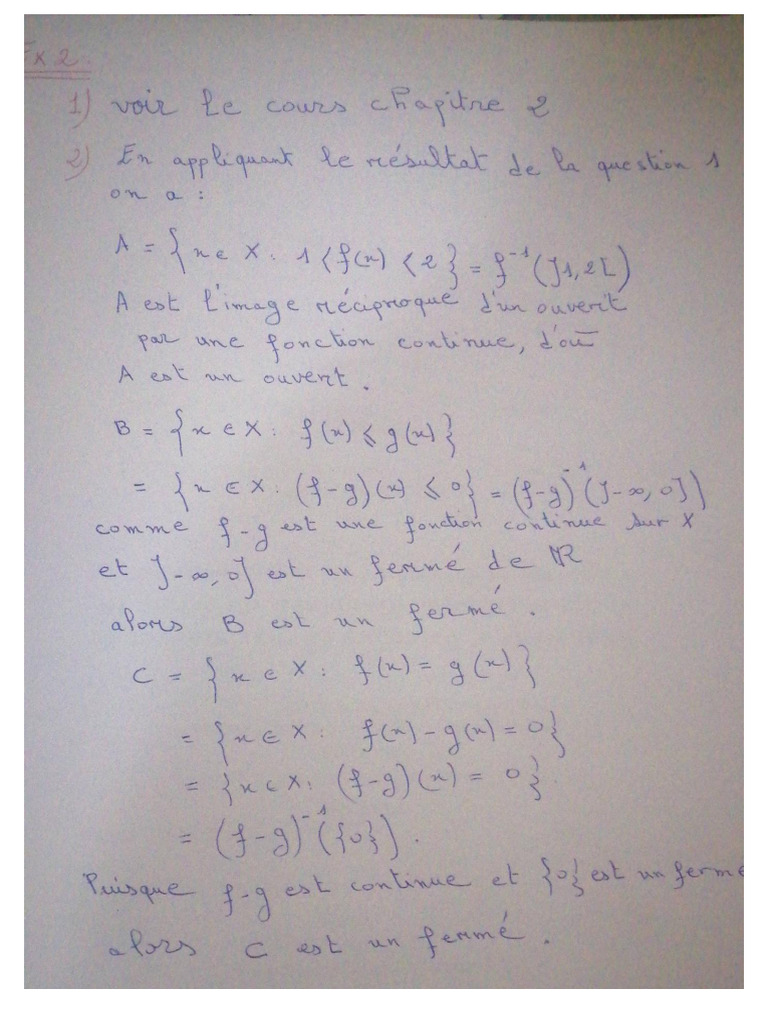 Ex 2.
1) voir le cours chapitre 2
2) En appliquant le résultat de la question 1
on a :
A = { x ∈ X : 1 < f(x) < 2 } = f⁻¹(]1,2[)
A est l'image réciproque d'un ouvert
par une fonction continue, d'où
A est un ouvert.
B = { x ∈ X : f(x) ⩽ g(x) }
= { x ∈ X : (f-g)(x) ⩽ 0 } = (f-g)⁻¹(]-∞, 0])
comme f-g est une fonction continue sur X
et ]-∞, 0] est un fermé de ℝ
alors B est un fermé.
C = { x ∈ X : f(x) = g(x) }
= { x ∈ X : f(x) - g(x) = 0 }
= { x ∈ X : (f-g)(x) = 0 }.
= (f-g)⁻¹({0}).
Puisque f-g est continue et {0} est un fermé
alors C est un fermé.